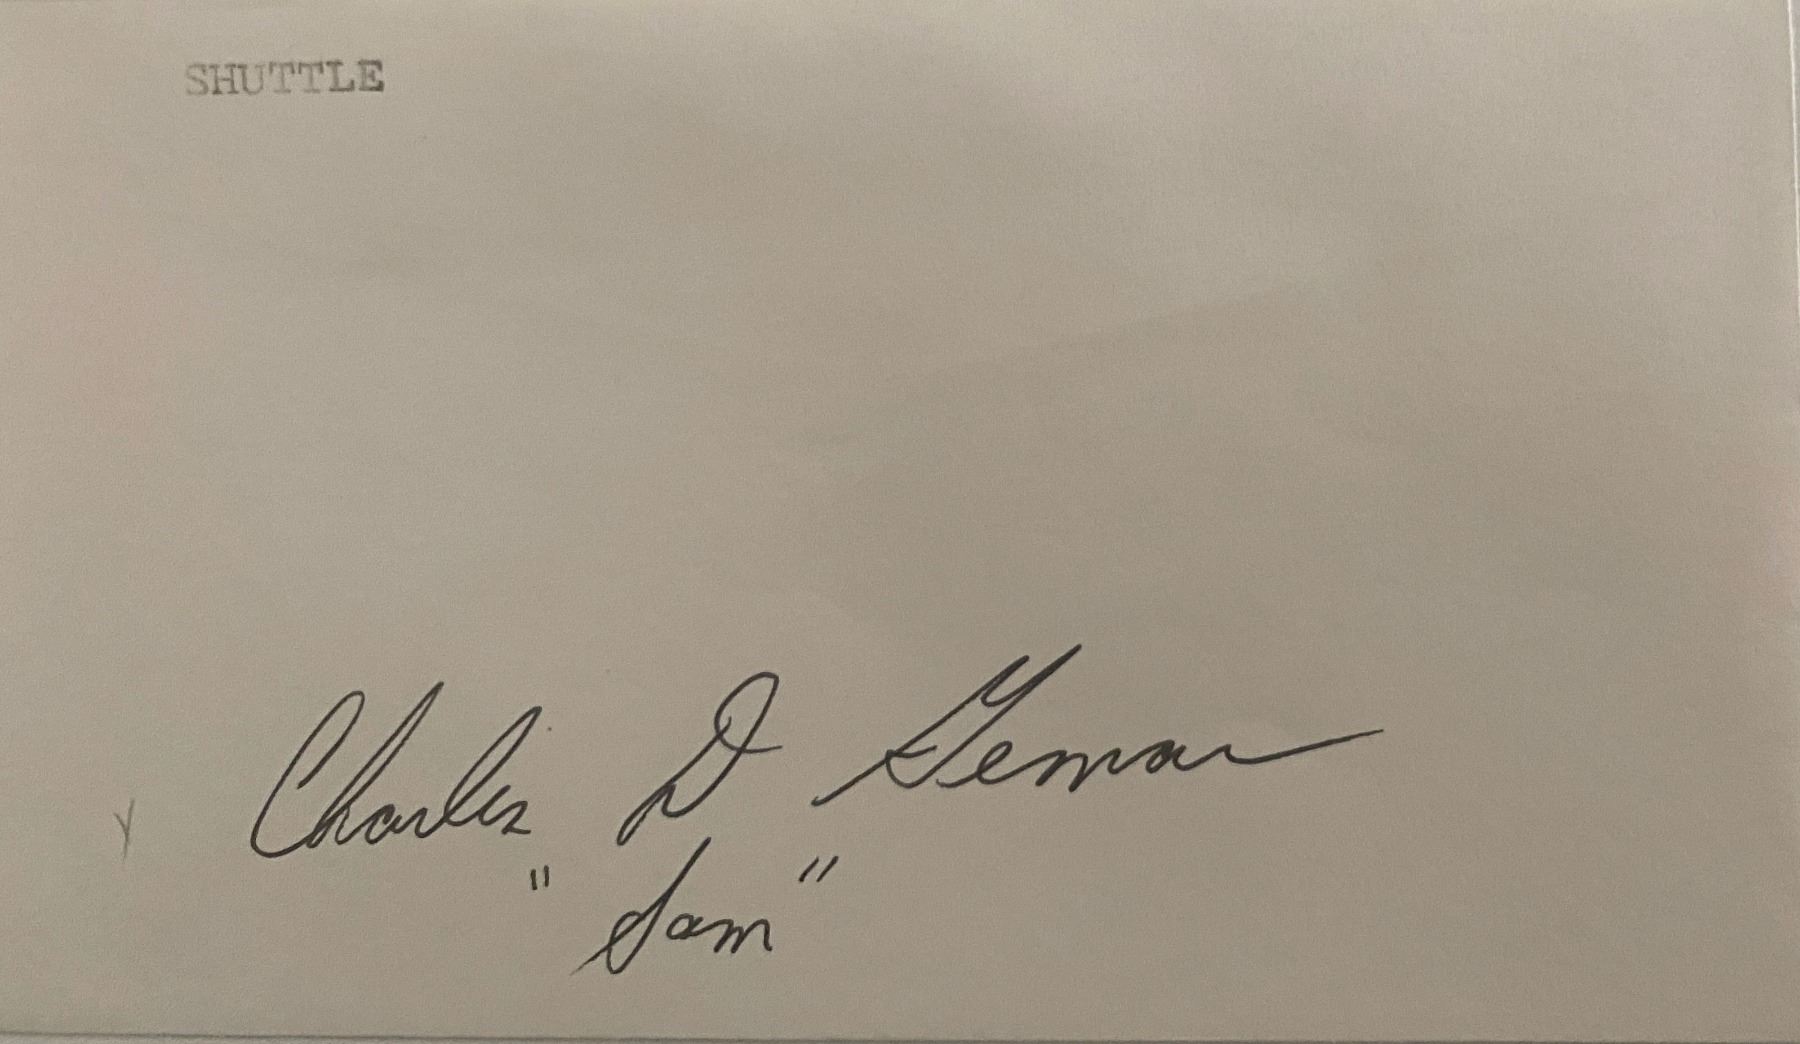 SHUTTLE
Charles D Gemar
"Sam"
Y